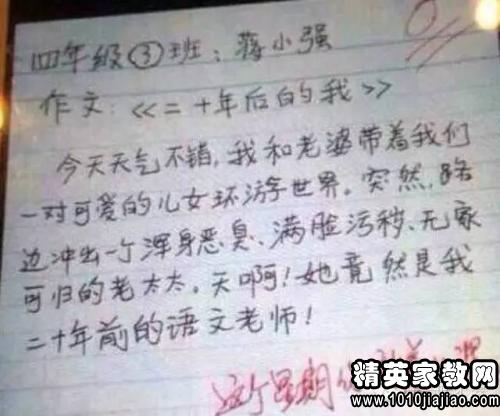 四年级③班：蒋小强
0
作文：《二十年后的我》
今天天气不错，我和老婆带着我们
一对可爱的儿女环游世界。突然，路
边冲出一个浑身恶臭、满脸污秽、无家
可归的老太太。天啊！她竟然是我
二十年前的语文老师！
这个星期
精英家教网
www.1010jiajiao.com